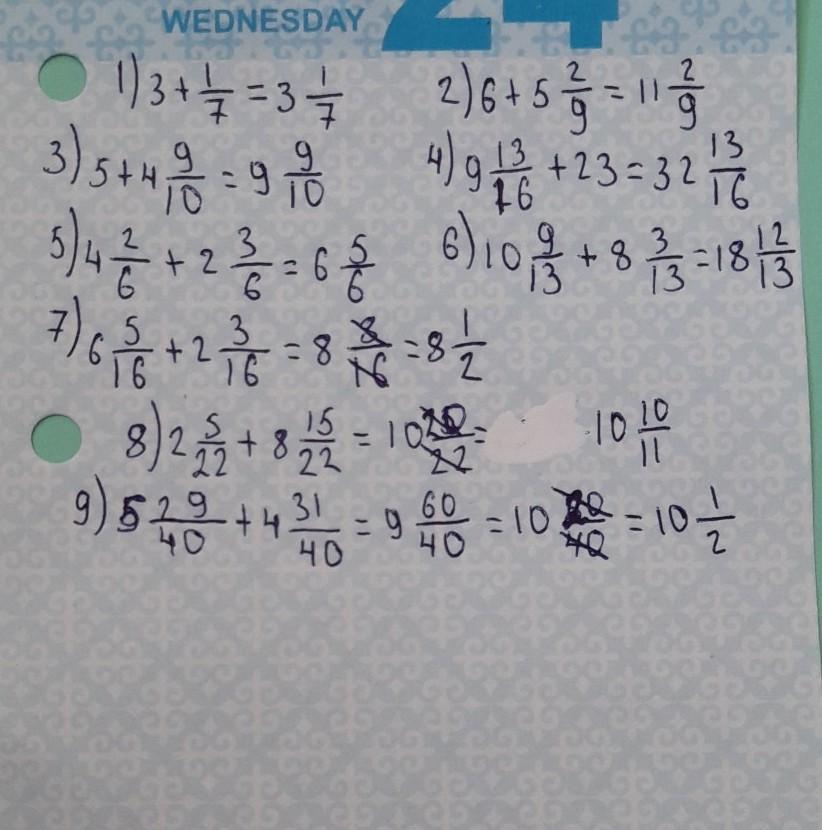 WEDNESDAY 24
1) 3 + 1/7 = 3 1/7 2) 6 + 5 2/9 = 11 2/9
3) 5 + 4 9/10 = 9 9/10 4) 9 13/16 + 23 = 32 13/16
5) 4 2/6 + 2 3/6 = 6 5/6 6) 10 9/13 + 8 3/13 = 18 12/13
7) 6 5/16 + 2 3/16 = 8 8/16 = 8 1/2
8) 2 5/22 + 8 15/22 = 10 20/22 = 10 10/11
9) 5 29/40 + 4 31/40 = 9 60/40 = 10 20/40 = 10 1/2